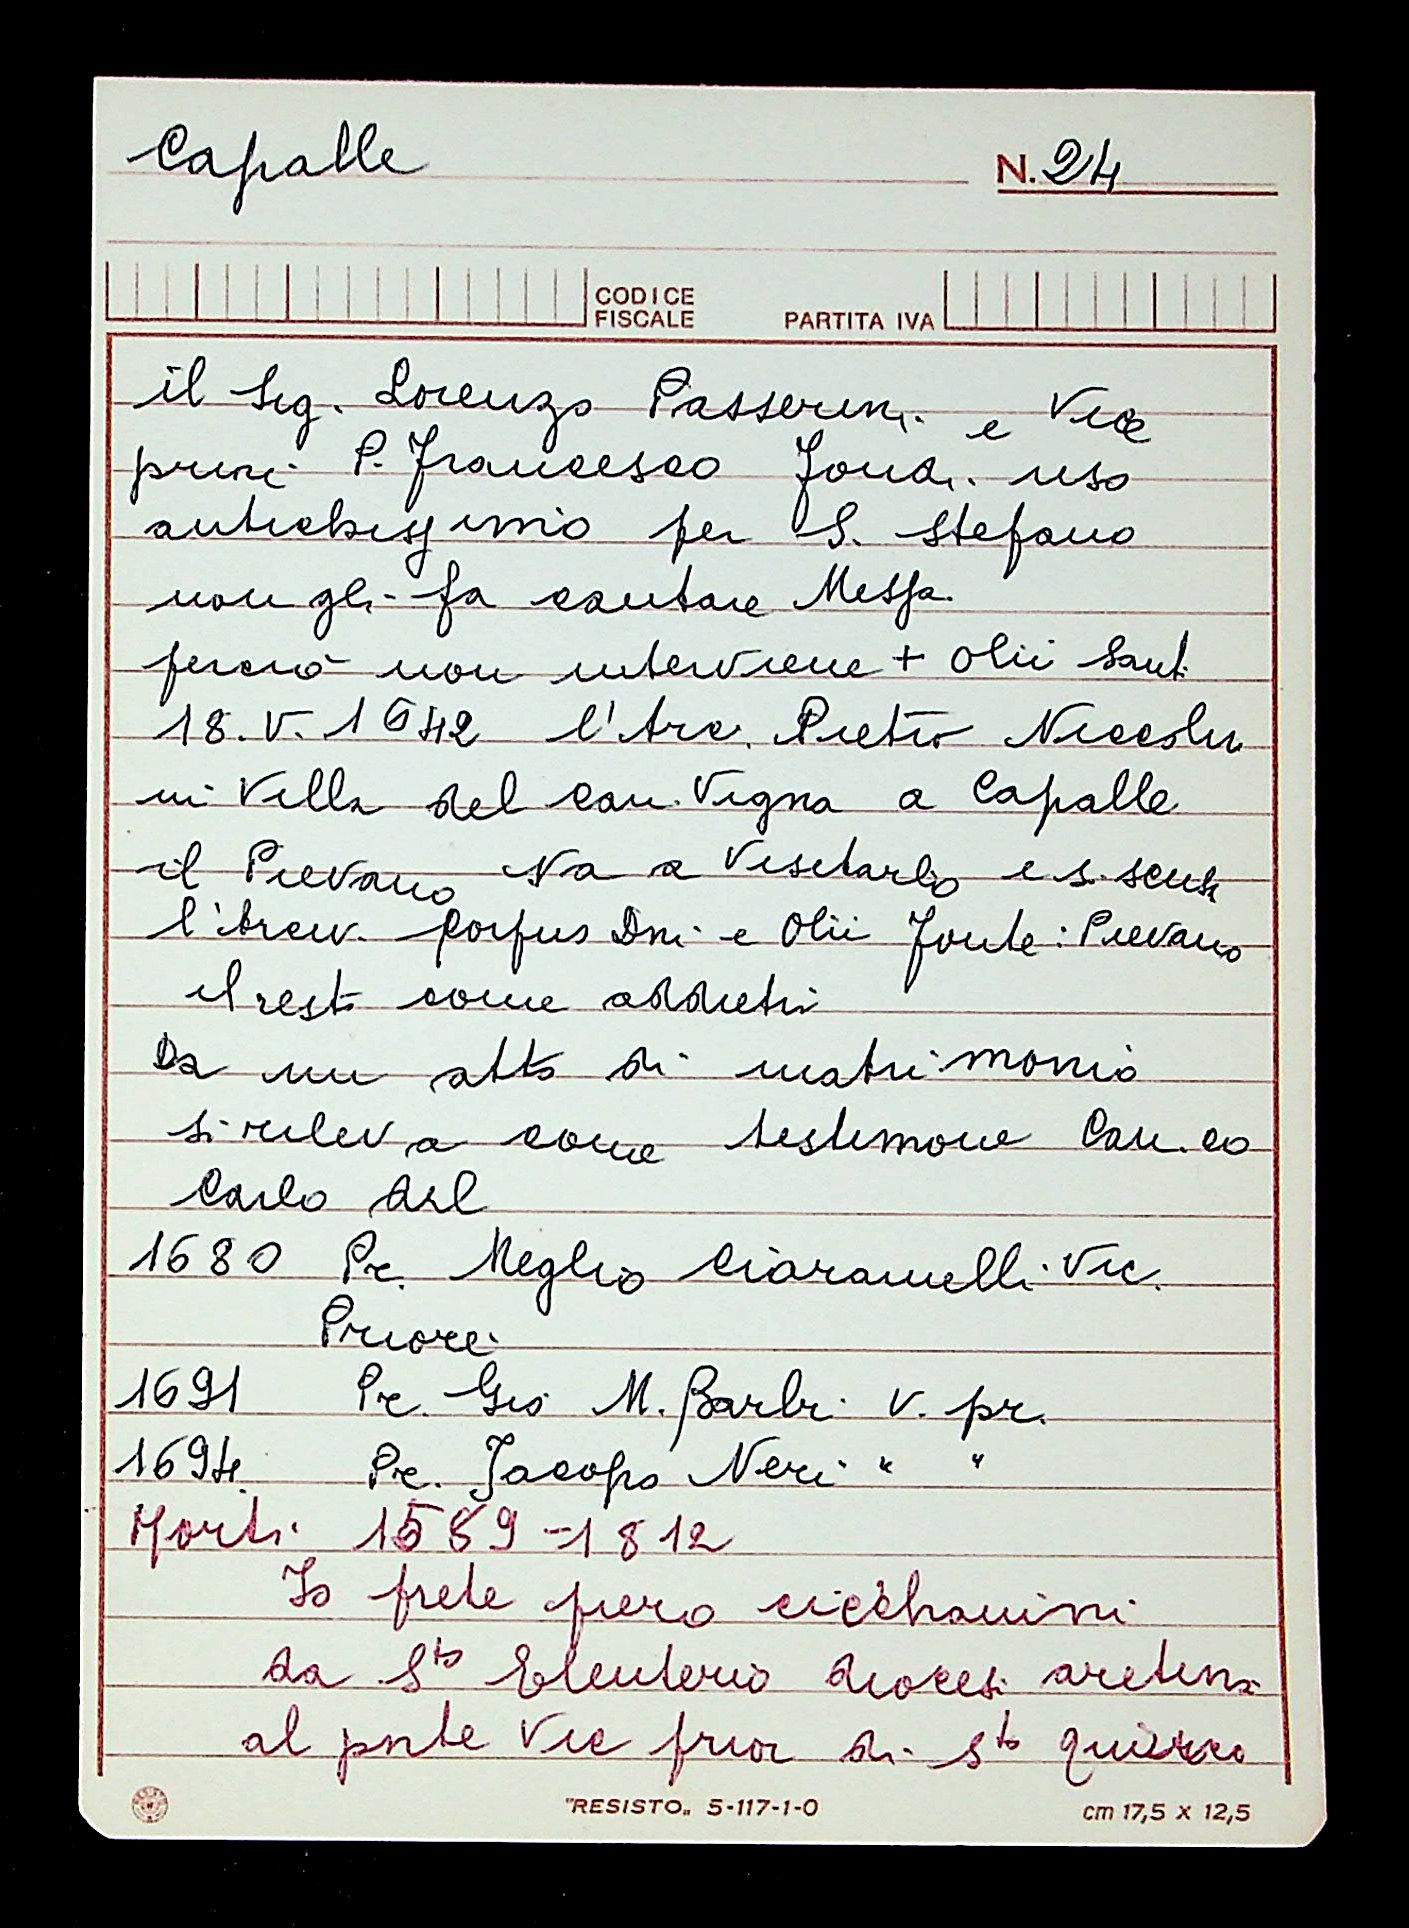 Capalle
N. 24
CODICE
FISCALE
PARTITA IVA
il Sig. Lorenzo Passerini e Vice
priori P. Francesco uso
antichissimo per S. Stefano
non gli fa cantare Messa.
perciò non interviene + Olii Santi
18. V. 1642 l'Arc. Pietro Niccolin
in Villa del can. Vigna a Capalle
il Pievano va a Visitarlo e si scusa
l'Arciv. Corpus Dni e Olii Fonte: Pievano
il resto come addietro
Da un atto di matrimonio
si rileva come testimone Can.co
Carlo del
1680 Pr. Meglio Ciaramelli Vic.
Priore
1691 Pr. Gio M. Barbi v. pr.
1694 Pr. Jacopo Neri " "
Morti 1589-1812
Io prete piero
da Sto Eleuterio diocesi aretina
al pnte Vic prior di sto quirico
"RESISTO„ 5-117-1-0
cm 17,5 x 12,5